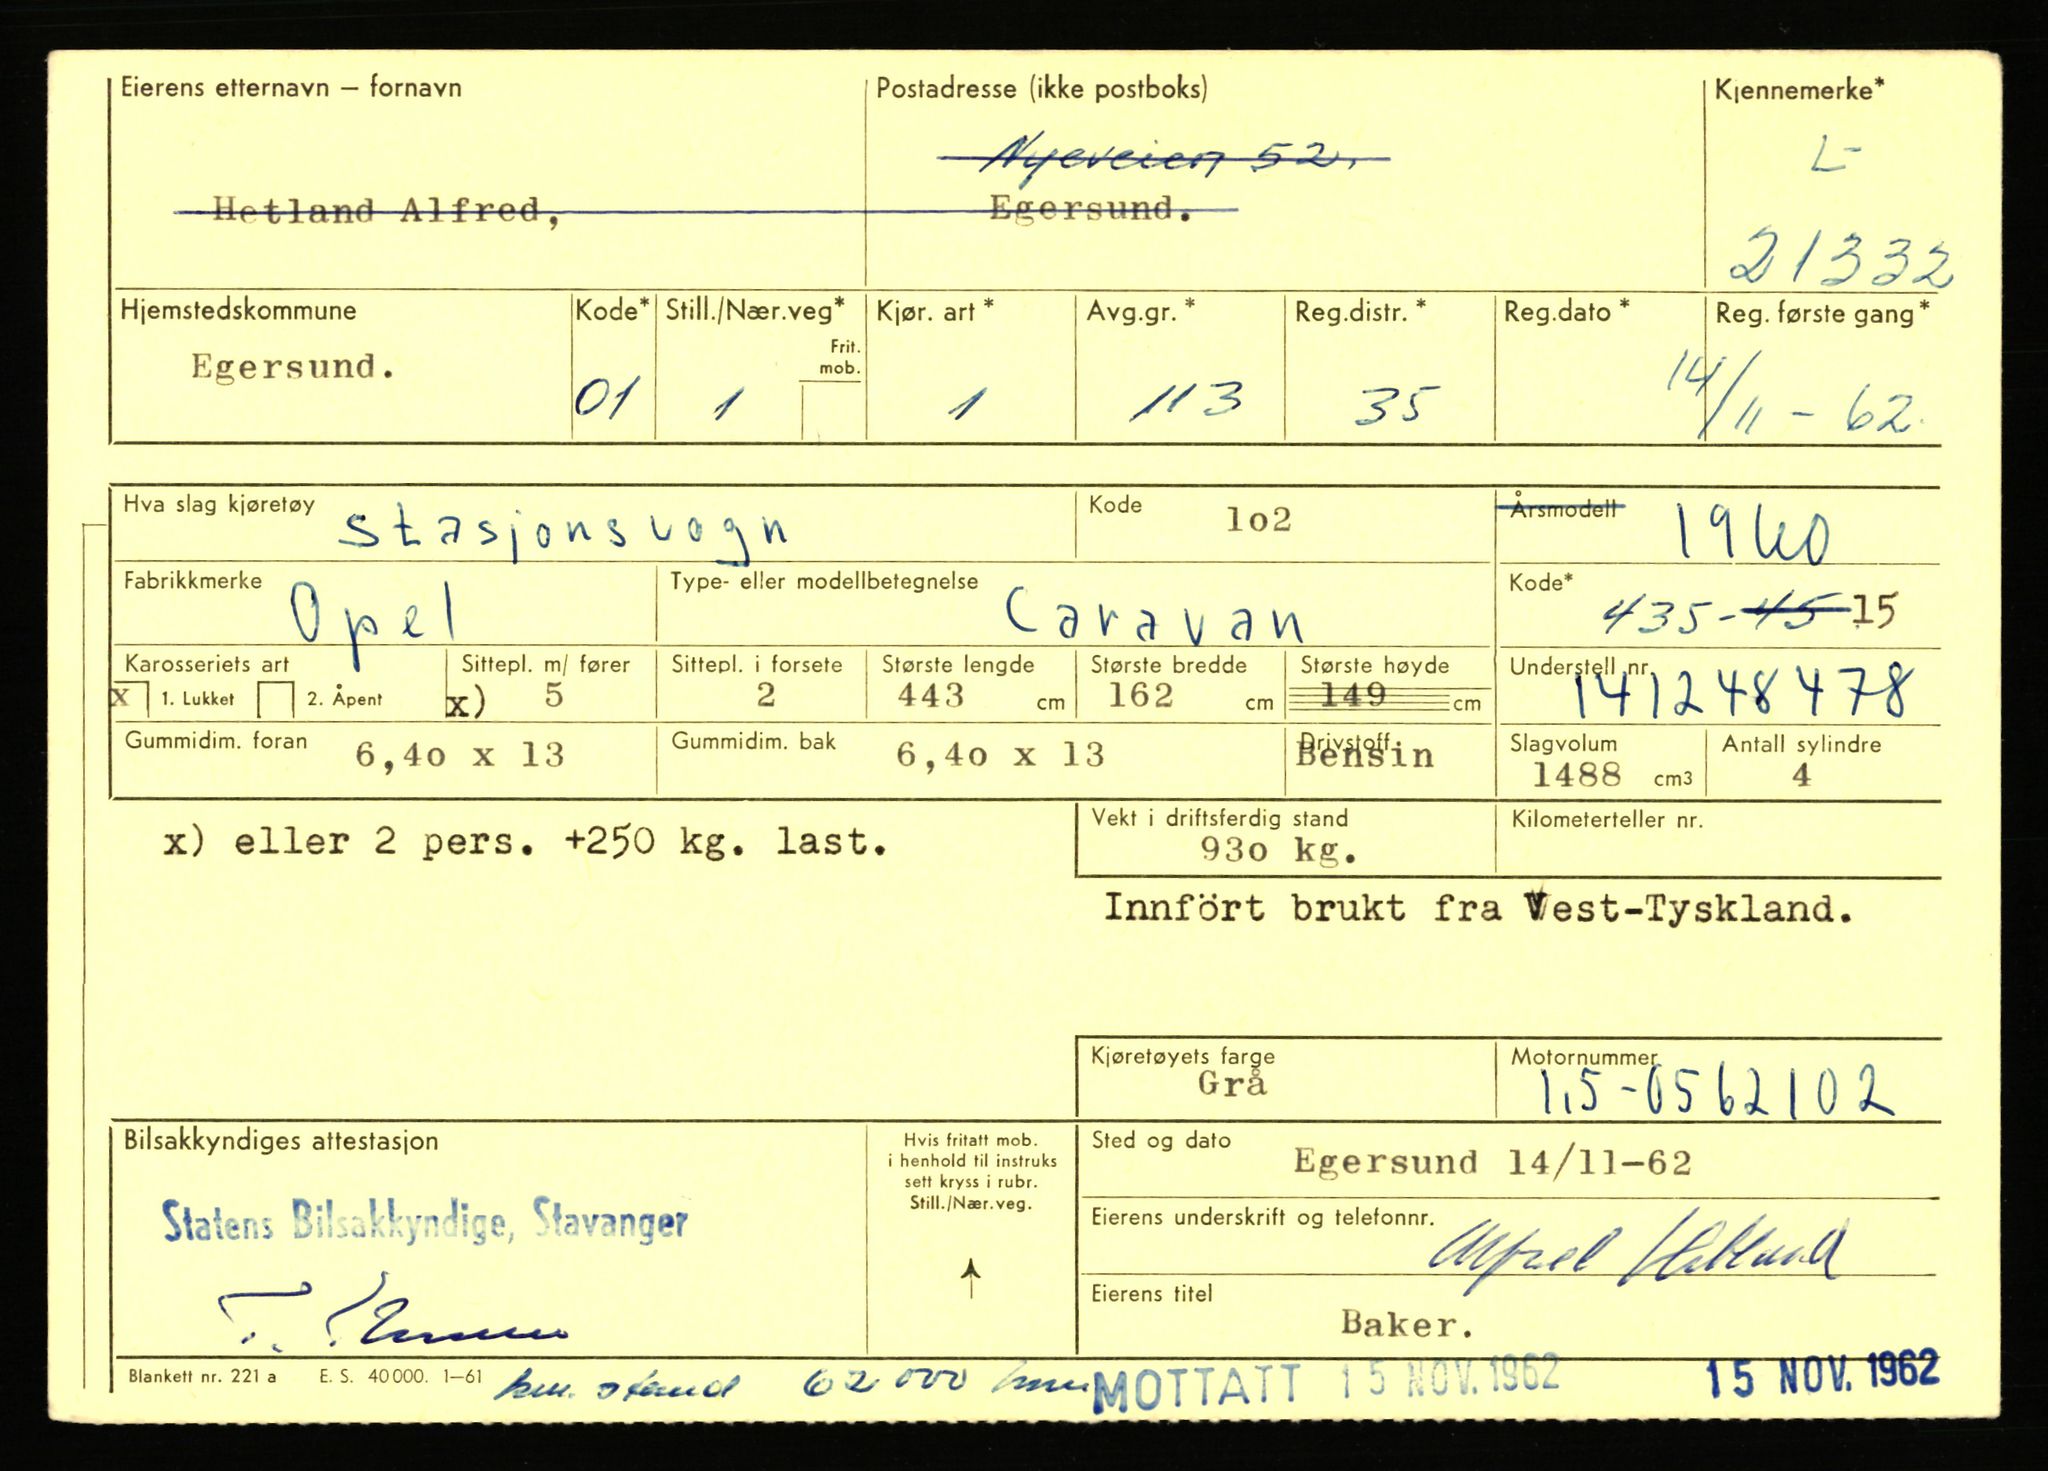 Eierens etternavn – fornavn Postadresse (ikke postboks) Kjennemerke*
Nyeveien 52. L-
Hetland Alfred, Egersund.
21332
Hjemstedskommune Kode* Still./Nær.veg* Kjør. art* Avg.gr.* Reg.distr.* Reg.dato* Reg. første gang*
Frit.
mob.
Egersund. 01 1 1 113 35 14/11-62.
Hva slag kjøretøy stasjonsvogn Kode 1o2 Årsmodell 1960
Fabrikkmerke Opel Type- eller modellbetegnelse Caravan Kode* 435-45 15
Karosseriets art Sittepl. m/ fører Sittepl. i forsete Største lengde Største bredde Største høyde Understell nr.
x 1. Lukket 2. Åpent x) 5 2 443 cm 162 cm 149 cm 141248478
Gummidim. foran 6,4o x 13 Gummidim. bak 6,4o x 13 Drivstoff Bensin Slagvolum 1488 cm3 Antall sylindre 4
x) eller 2 pers. +250 kg. last.
Vekt i driftsferdig stand Kilometerteller nr.
93o kg.
Innfört brukt fra Vest-Tyskland.
Kjøretøyets farge Motornummer
Grå 1,5-0562102
Bilsakkyndiges attestasjon
Statens Bilsakkyndige, Stavanger
Hvis fritatt mob.
i henhold til instruks
sett kryss i rubr.
Still./Nær.veg.
Sted og dato Egersund 14/11-62
Eierens underskrift og telefonnr. Alfred Hetland
Eierens titel
Baker.
Blankett nr. 221 a E. S. 40000. 1–61 km. stand 62000 km MOTTATT 15 NOV. 1962 15 NOV. 1962